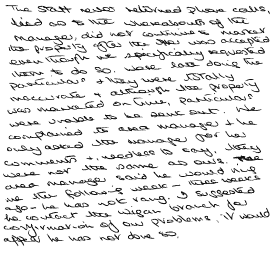 The staff never returned phone calls,
lied as to the whereabouts of the
manager, did not continue to market
the property after the offer was accepted
even though we specifically requested
them to do so. were late doing the
particulars & they were totally
inaccurate & although the property
was marketed on time, particulars
were unable to be sent out. We
complained to area manager & he
only asked the manager for her
comments &, needless to say, they
were not the same as ours. The
area manager said he would ring
us the following week - three weeks
ago - he has not rang. I suggested
he contact the Wigan branch for
confirmation of our problems, it would
appear he has not done so.